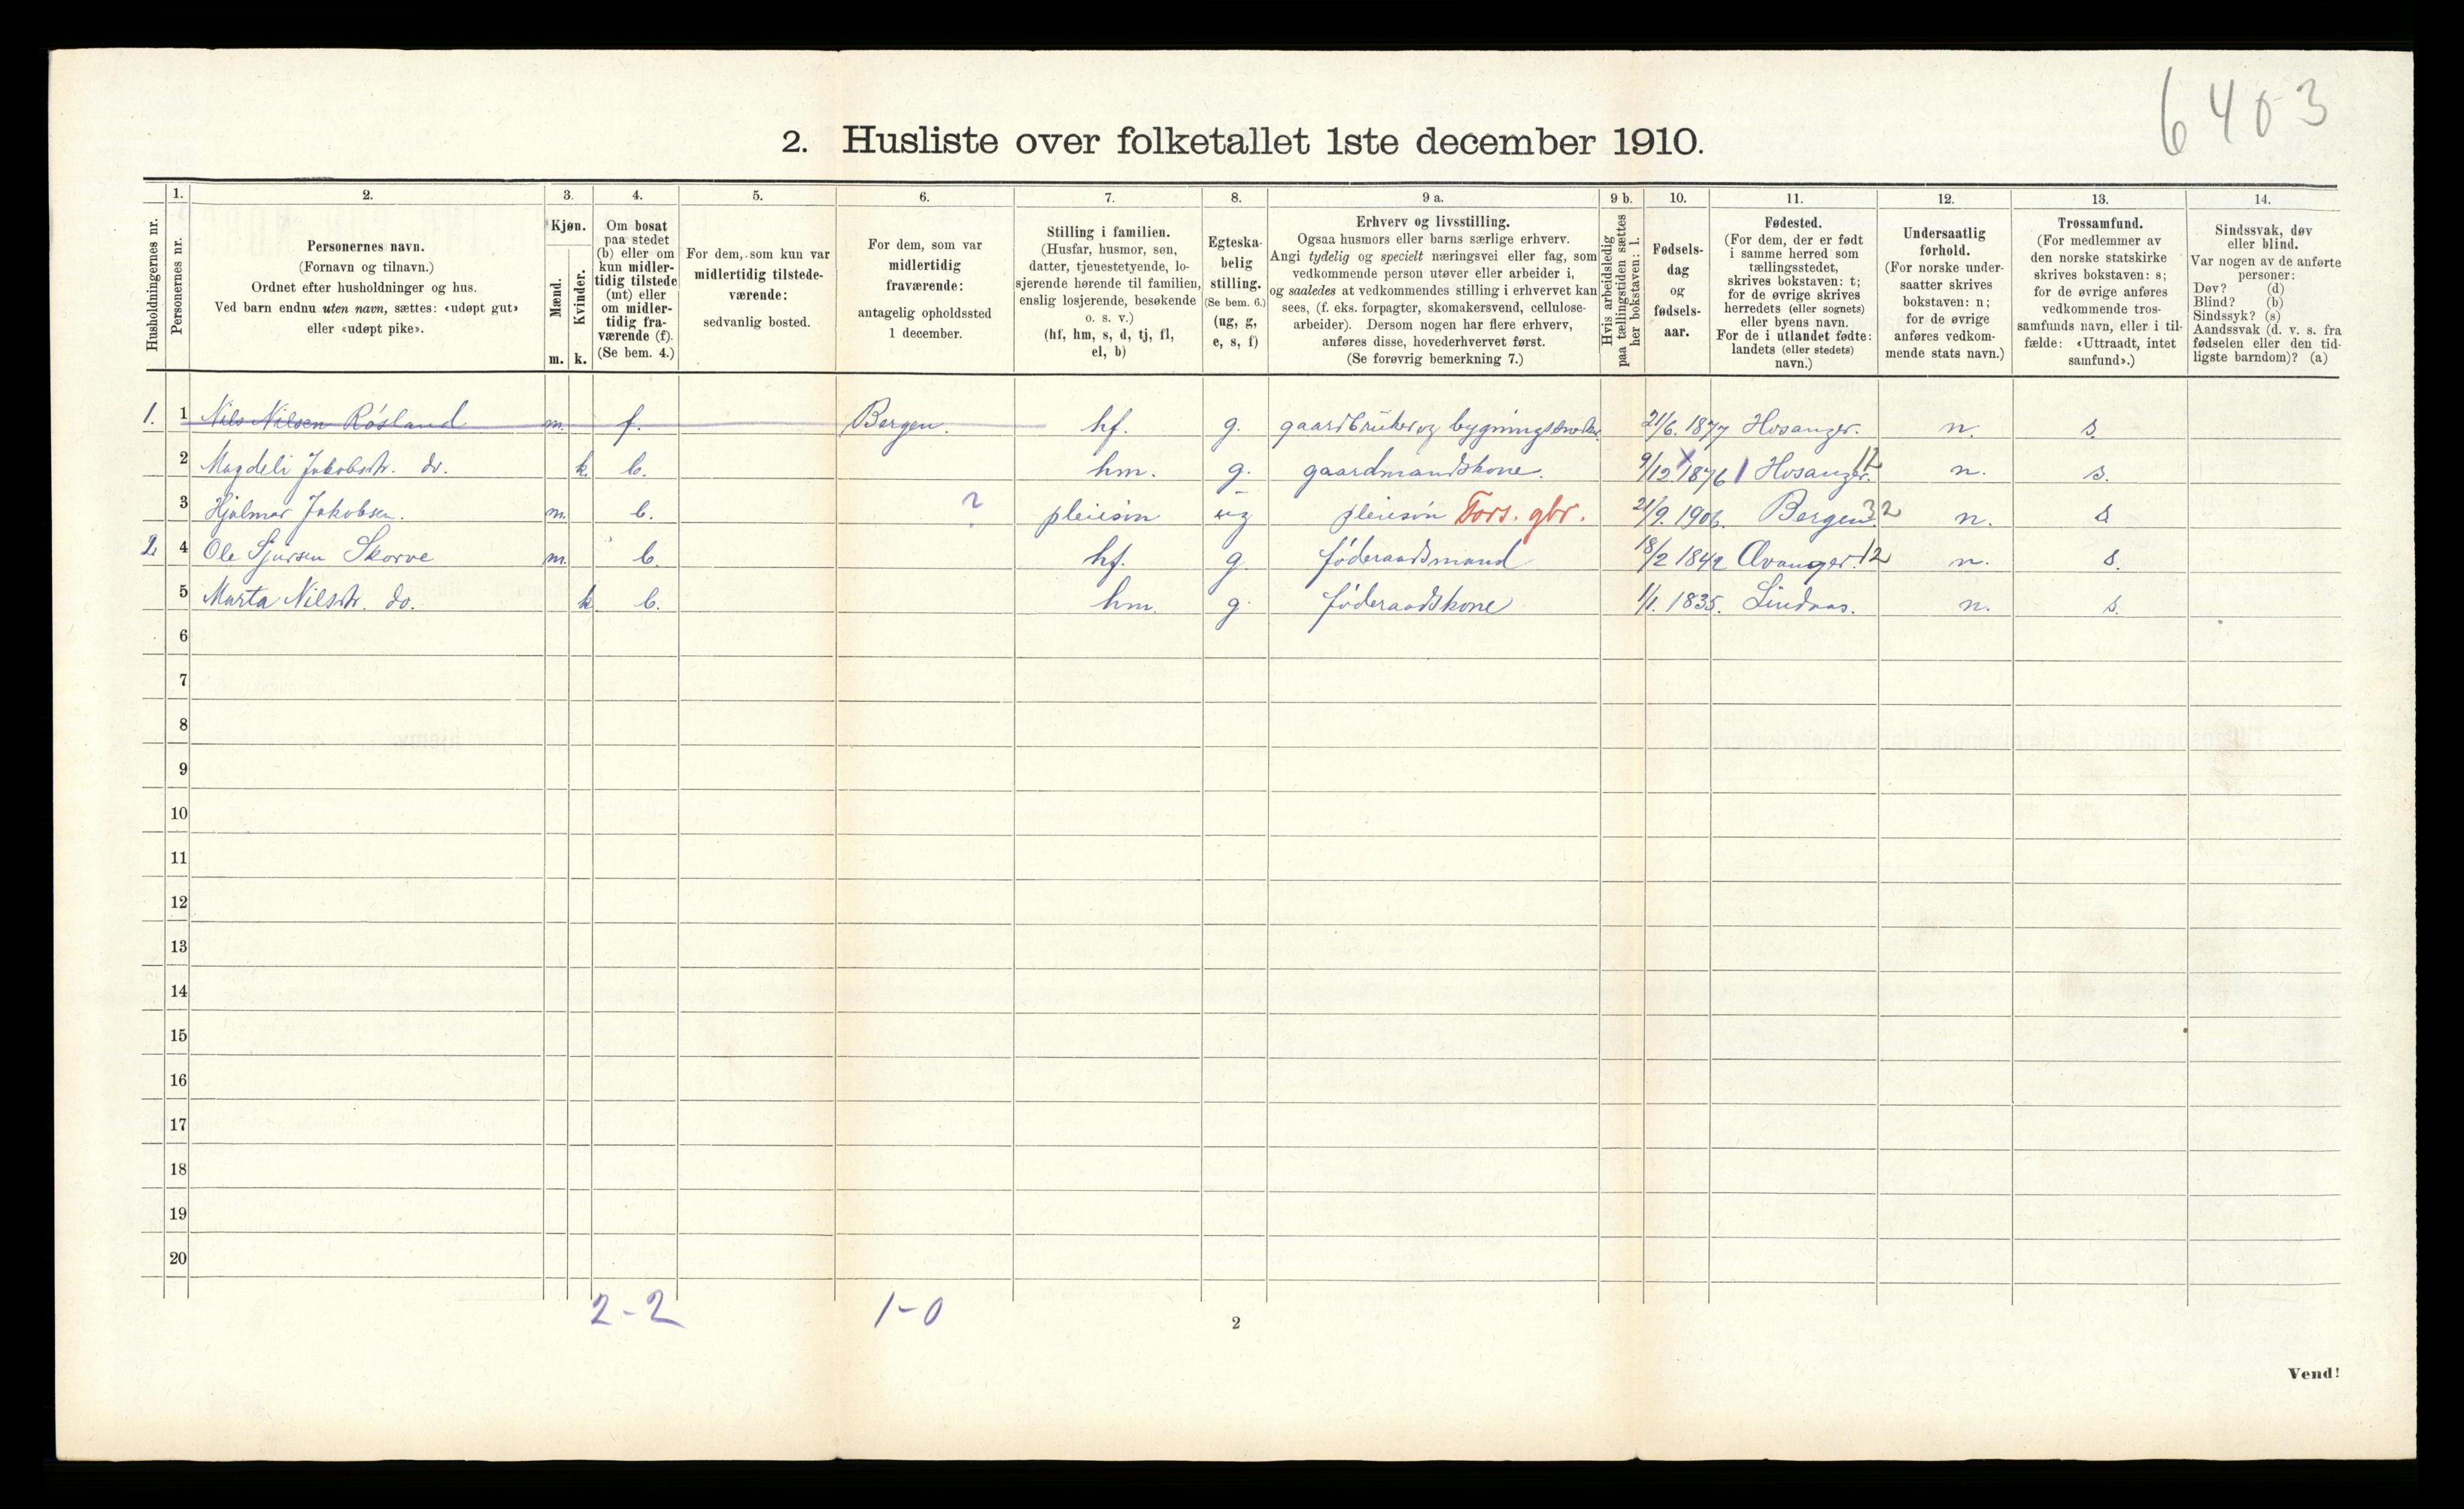 6403
2. Husliste over folketallet 1ste december 1910.
Husholdningernes nr.
1.
Personernes nr.
2.
Personernes navn.
(Fornavn og tilnavn.)
Ordnet efter husholdninger og hus.
Ved barn endnu uten navn, sættes: «udøpt gut»
eller «udøpt pike».
3.
Kjøn.
Mænd.
Kvinder.
m. k.
4.
Om bosat
paa stedet
(b) eller om
kun midler-
tidig tilstede
(mt) eller
om midler-
tidig fra-
værende (f).
(Se bem. 4.)
5.
For dem, som kun var
midlertidig tilstede-
værende:
sedvanlig bosted.
6.
For dem, som var
midlertidig
fraværende:
antagelig opholdssted
1 december.
7.
Stilling i familien.
(Husfar, husmor, søn,
datter, tjenestetyende, lo-
sjerende hørende til familien,
enslig losjerende, besøkende
o. s. v.)
(hf, hm, s, d, tj, fl,
el, b)
8.
Egteska-
belig
stilling.
(Se bem. 6.)
(ug, g,
e, s, f)
9 a.
Erhverv og livsstilling.
Ogsaa husmors eller barns særlige erhverv.
Angi tydelig og specielt næringsvei eller fag, som
vedkommende person utøver eller arbeider i,
og saaledes at vedkommendes stilling i erhvervet kan
sees, (f. eks. forpagter, skomakersvend, cellulose-
arbeider). Dersom nogen har flere erhverv,
anføres disse, hovederhvervet først.
(Se forøvrig bemerkning 7.)
9 b.
Hvis arbeidsledig
paa tællingstiden sættes
her bokstaven: l.
10.
Fødsels-
dag
og
fødsels-
aar.
11.
Fødested.
(For dem, der er født
i samme herred som
tællingsstedet,
skrives bokstaven: t;
for de øvrige skrives
herredets (eller sognets)
eller byens navn.
For de i utlandet fødte:
landets (eller stedets)
navn.)
12.
Undersaatlig
forhold.
(For norske under-
saatter skrives
bokstaven: n;
for de øvrige
anføres vedkom-
mende stats navn.)
13.
Trossamfund.
(For medlemmer av
den norske statskirke
skrives bokstaven: s;
for de øvrige anføres
vedkommende tros-
samfunds navn, eller i til-
fælde: «Uttraadt, intet
samfund».)
14.
Sindssvak, døv
eller blind.
Var nogen av de anførte
personer:
Døv? (d)
Blind? (b)
Sindssyk? (s)
Aandssvak (d. v. s. fra
fødselen eller den tid-
ligste barndom)? (a)
1. 1 Nils Nilsen Røsland m. f. Bergen. hf. g. gaardbruker og 21/6. 1877 Hosanger. n. s.
2 Magdeli Jakobsdr. do. k b. hm. g. gaardmandskone. 9/12 1876 Hosanger. 12 n. s.
3 Hjalmar Jakobsen. m. b. ? pleiesøn ug pleiesøn Fors. gbr. 21/9. 1906. Bergen. 32 n. s
2. 4 Ole Sjursen Skorve m. b. hf. g. føderaadsmand 18/2 1842 12 n. s.
5 Marta Nilsdr. do. k b. hm. g. føderaadskone 1/1. 1835. Lindaas. n. s.
6
7
8
9
10
11
12
13
14
15
16
17
18
19
20
2-2 1-0
2
Vend!